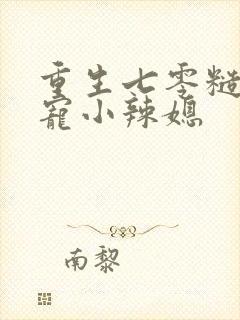 重生七零糙
宠小辣媳
南黎